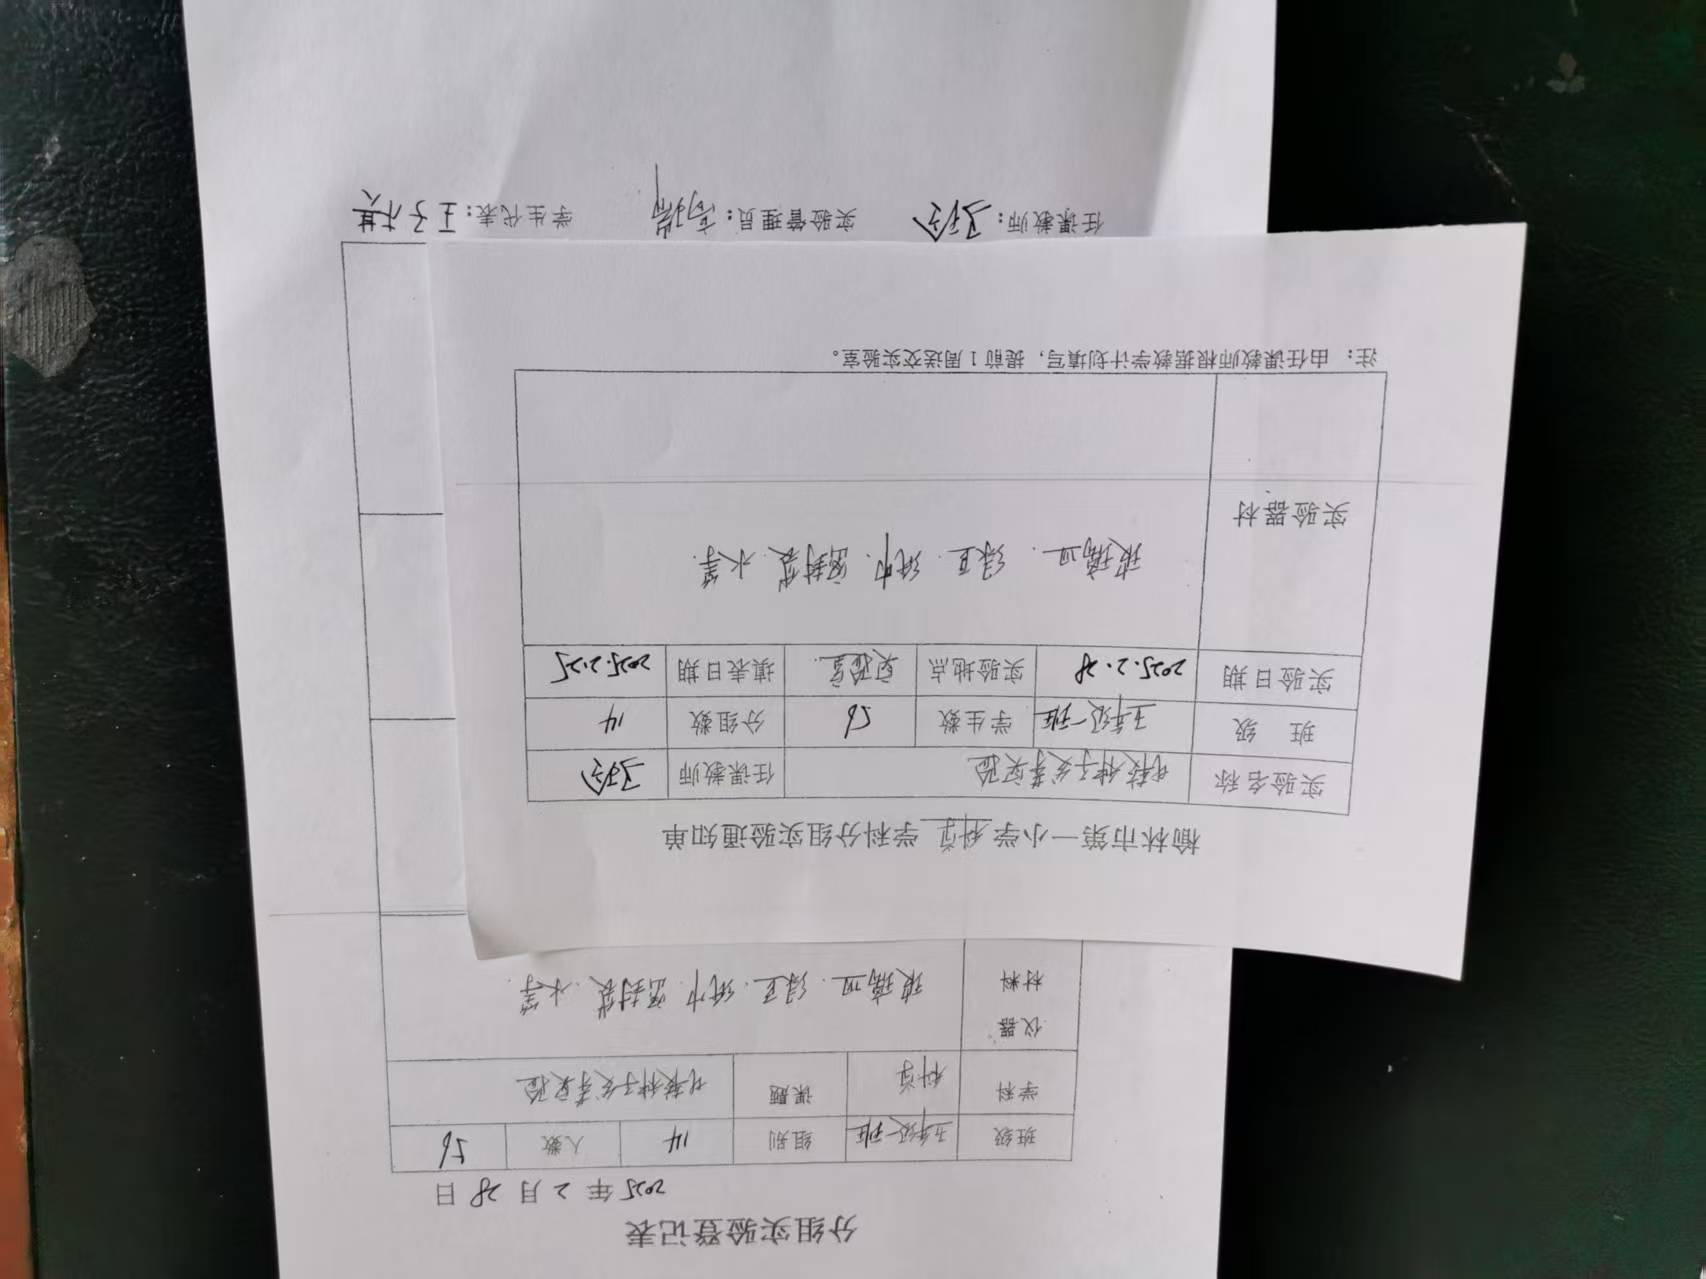 榆林市第一小学科学学科分组实验通知单
实验名称 比较种子发芽实验 任课教师
班 级 五年级一班 学生数 56 分组数 14
实验日期 2025.2.28 实验地点 实验室 填表日期 2025.2.25
实验器材 玻璃皿. 绿豆. 纸巾. 密封袋. 水等.
注：由任课教师根据教学计划填写，提前1周送交实验室。
分组实验登记表
2025年2月28日
班级 五年级一班 组别 14 人数 56
学科 科学 课题 比较种子发芽实验
仪器
材料 玻璃皿. 绿豆. 纸巾. 密封袋. 水等.
任课教师： 实验管理员： 学生代表：王子